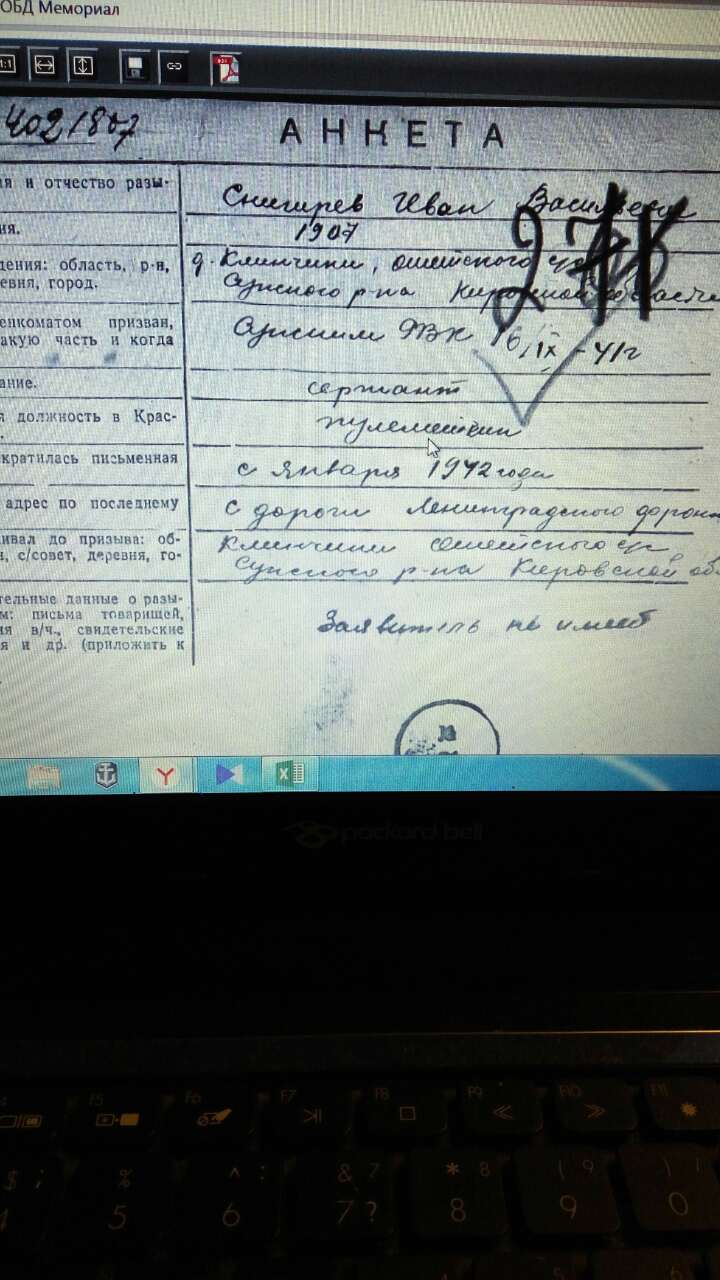 ОБД Мемориал
1:1
PDF
4021807 АНКЕТА
ия и отчество разы- Снигирев Иван Васильевич
ия. 1907
дения: область, р-н, д. Климчини, ошетского с/с
евня, город. Сунского р-на Кировской области
енкоматом призван, Сунским РВК 16/IX-41г
акую часть и когда
ание. сержант
я должность в Крас- пулеметчик
кратилась письменная с января 1942 года
адрес по последнему с дороги Ленинградского
ивал до призыва: об- Климчини Ошетского с/с
н, с/совет, деревня, го- Сунского р-на Кировской об
тельные данные о разы-
ом: письма товарищей, Заявитель не имеет
ия в/ч., свидетельские
я и др. (приложить к
27К
packard bell
F5 F6 F7 F8 F9 F10 F11
$ ; % ^ : & ? * 8 ( 9 )
4 5 6 7 ? 8 9 0